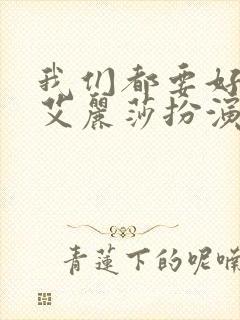 我们都要好
艾麗莎扮演
青蓮下的呢喃